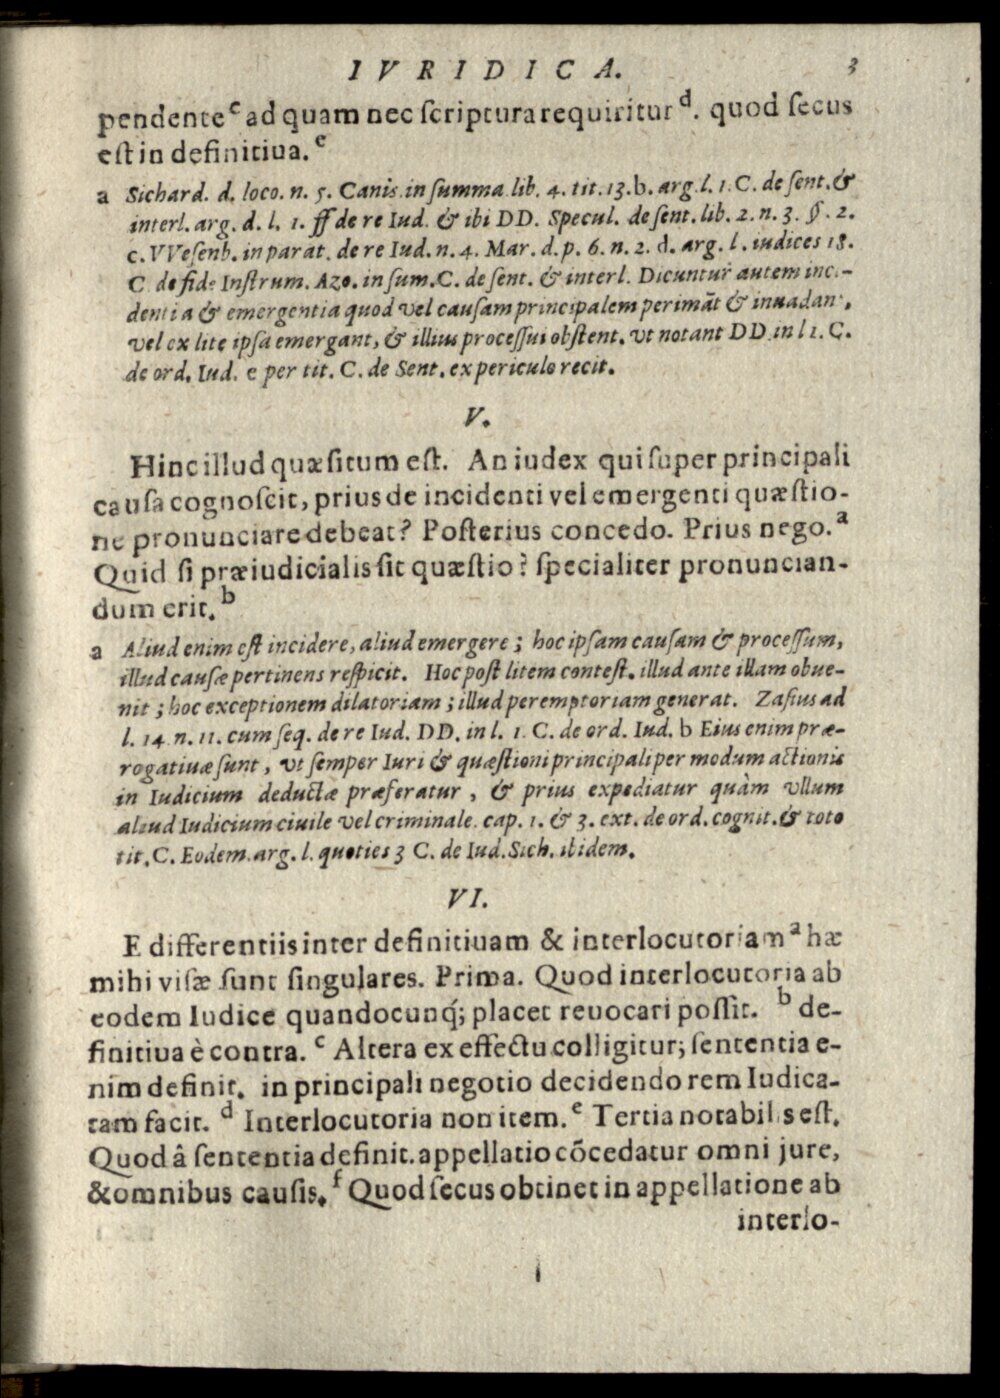 IVRIDICA. 3
pendente c ad quam nec ſcriptura requiritur d. quod ſecus
eſt in definitiua. e
a Sichard. d. loco. n. 5. Canis. in ſumma lib. 4. tit. 13. b. arg. l. 1. C. de ſent. &
interl. arg. d. l. 1. ff de re Iud. & ibi DD. Specul. de ſent. lib. 2. n. 3. §. 2.
c. VVeſenb. in parat. de re Iud. n. 4. Mar. d. p. 6. n. 2. d. arg. l. iudices 18.
C. de fide Inſtrum. Azo. in ſum. C. de ſent. & interl. Dicuntur autem inci-
dentia & emergentia quod vel cauſam principalem perimāt & inuadant,
vel ex lite ipſa emergant, & illius proceſſui obſtent. vt notant DD. in l 1. C.
de ord. Iud. e per tit. C. de Sent. ex periculo recit.
V.
Hinc illud quæſitum eſt. An iudex qui ſuper principali
cauſa cognoſcit, prius de incidenti vel emergenti quæſtio-
ne pronunciare debeat? Poſterius concedo. Prius nego. a
Quid ſi præiudicialis ſit quæſtio? ſpecialiter pronuncian-
dum erit. b
a Aliud enim eſt incidere, aliud emergere; hoc ipſam cauſam & proceſſum,
illud cauſæ pertinens reſpicit. Hoc poſt litem conteſt. illud ante illam obue-
nit; hoc exceptionem dilatoriam; illud peremptoriam generat. Zaſius ad
l. 14. n. 11. cum ſeq. de re Iud. DD. in l. 1. C. de ord. Iud. b Eius enim præ-
rogatiuæ ſunt, vt ſemper Iuri & quæſtioni principali per modum actionis
in Iudicium deductæ præferatur, & prius expediatur quàm vllum
aliud Iudicium ciuile vel criminale. cap. 1. & 3. ext. de ord. cognit. & toto
tit. C. Eodem. arg. l. quoties 3 C. de Iud. Sich. ibidem.
VI.
E differentiis inter definitiuam & interlocutoriam a hæ
mihi viſæ ſunt ſingulares. Prima. Quod interlocutoria ab
eodem Iudice quandocunq́; placet reuocari poſſit. b de-
finitiua è contra. c Altera ex effectu colligitur; ſententia e-
nim definit. in principali negotio decidendo rem Iudica-
tam facit. d Interlocutoria non item. e Tertia notabilis eſt.
Quod â ſententia definit. appellatio cōcedatur omni jure,
& omnibus cauſis. f Quod ſecus obtinet in appellatione ab
interlo-